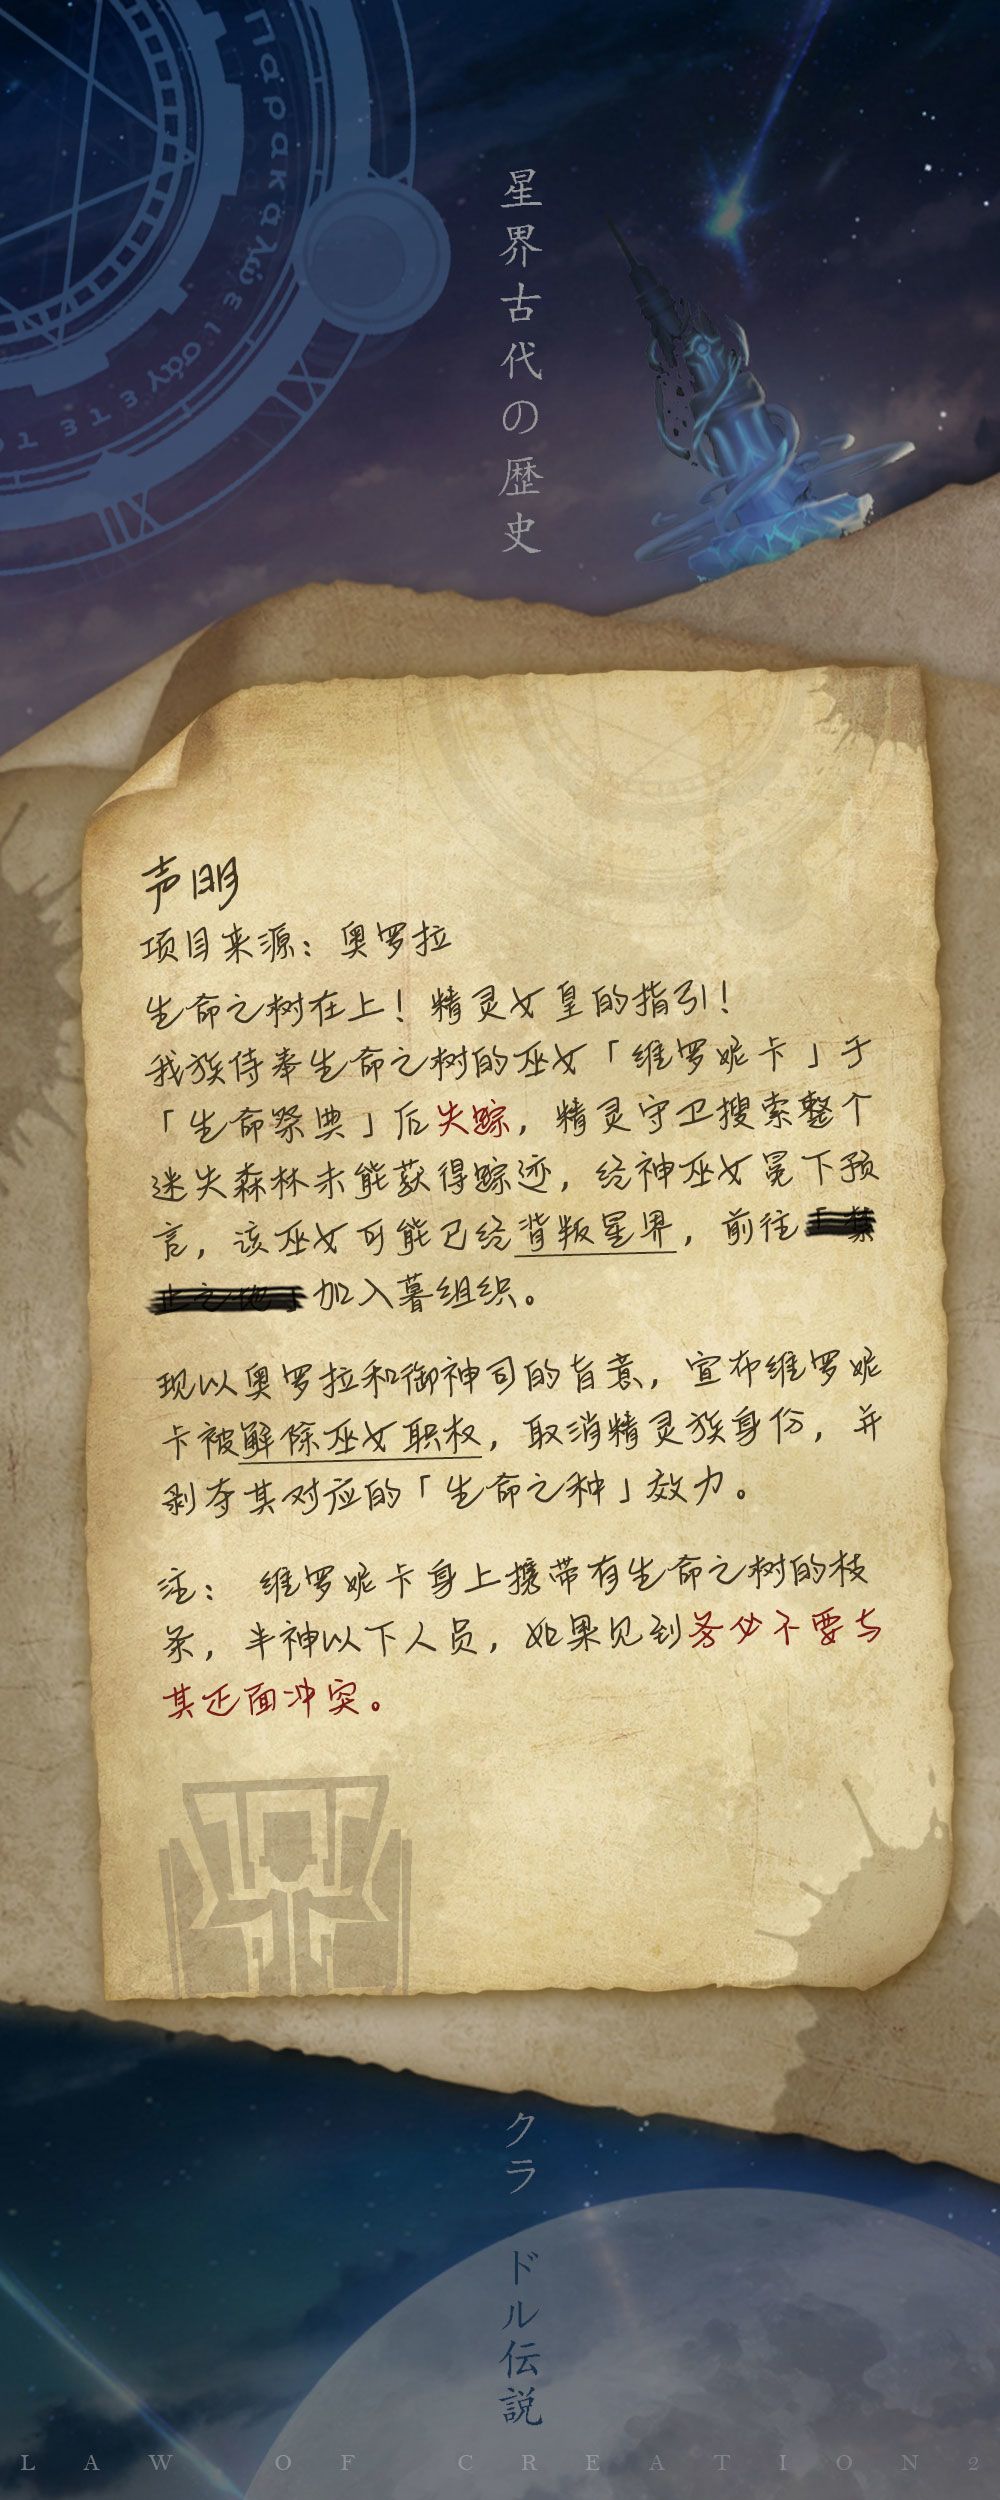 Παρακαλώ εισάγετε το
星界古代の歴史
声明
项目来源：奥罗拉
生命之树在上！精灵女皇的指引！
我族侍奉生命之树的巫女「维罗妮卡」于
「生命祭典」后失踪，精灵守卫搜索整个
迷失森林未能获得踪迹，经神巫女冕下预
言，该巫女可能已经背叛星界，前往「禁
止之地」加入暮组织。
现以奥罗拉和御神司的旨意，宣布维罗妮
卡被解除巫女职权，取消精灵族身份，并
剥夺其对应的「生命之种」效力。
注： 维罗妮卡身上携带有生命之树的枝
条，半神以下人员，如果见到务必不要与
其正面冲突。
クラ ドル伝説
LAW OF CREATION2